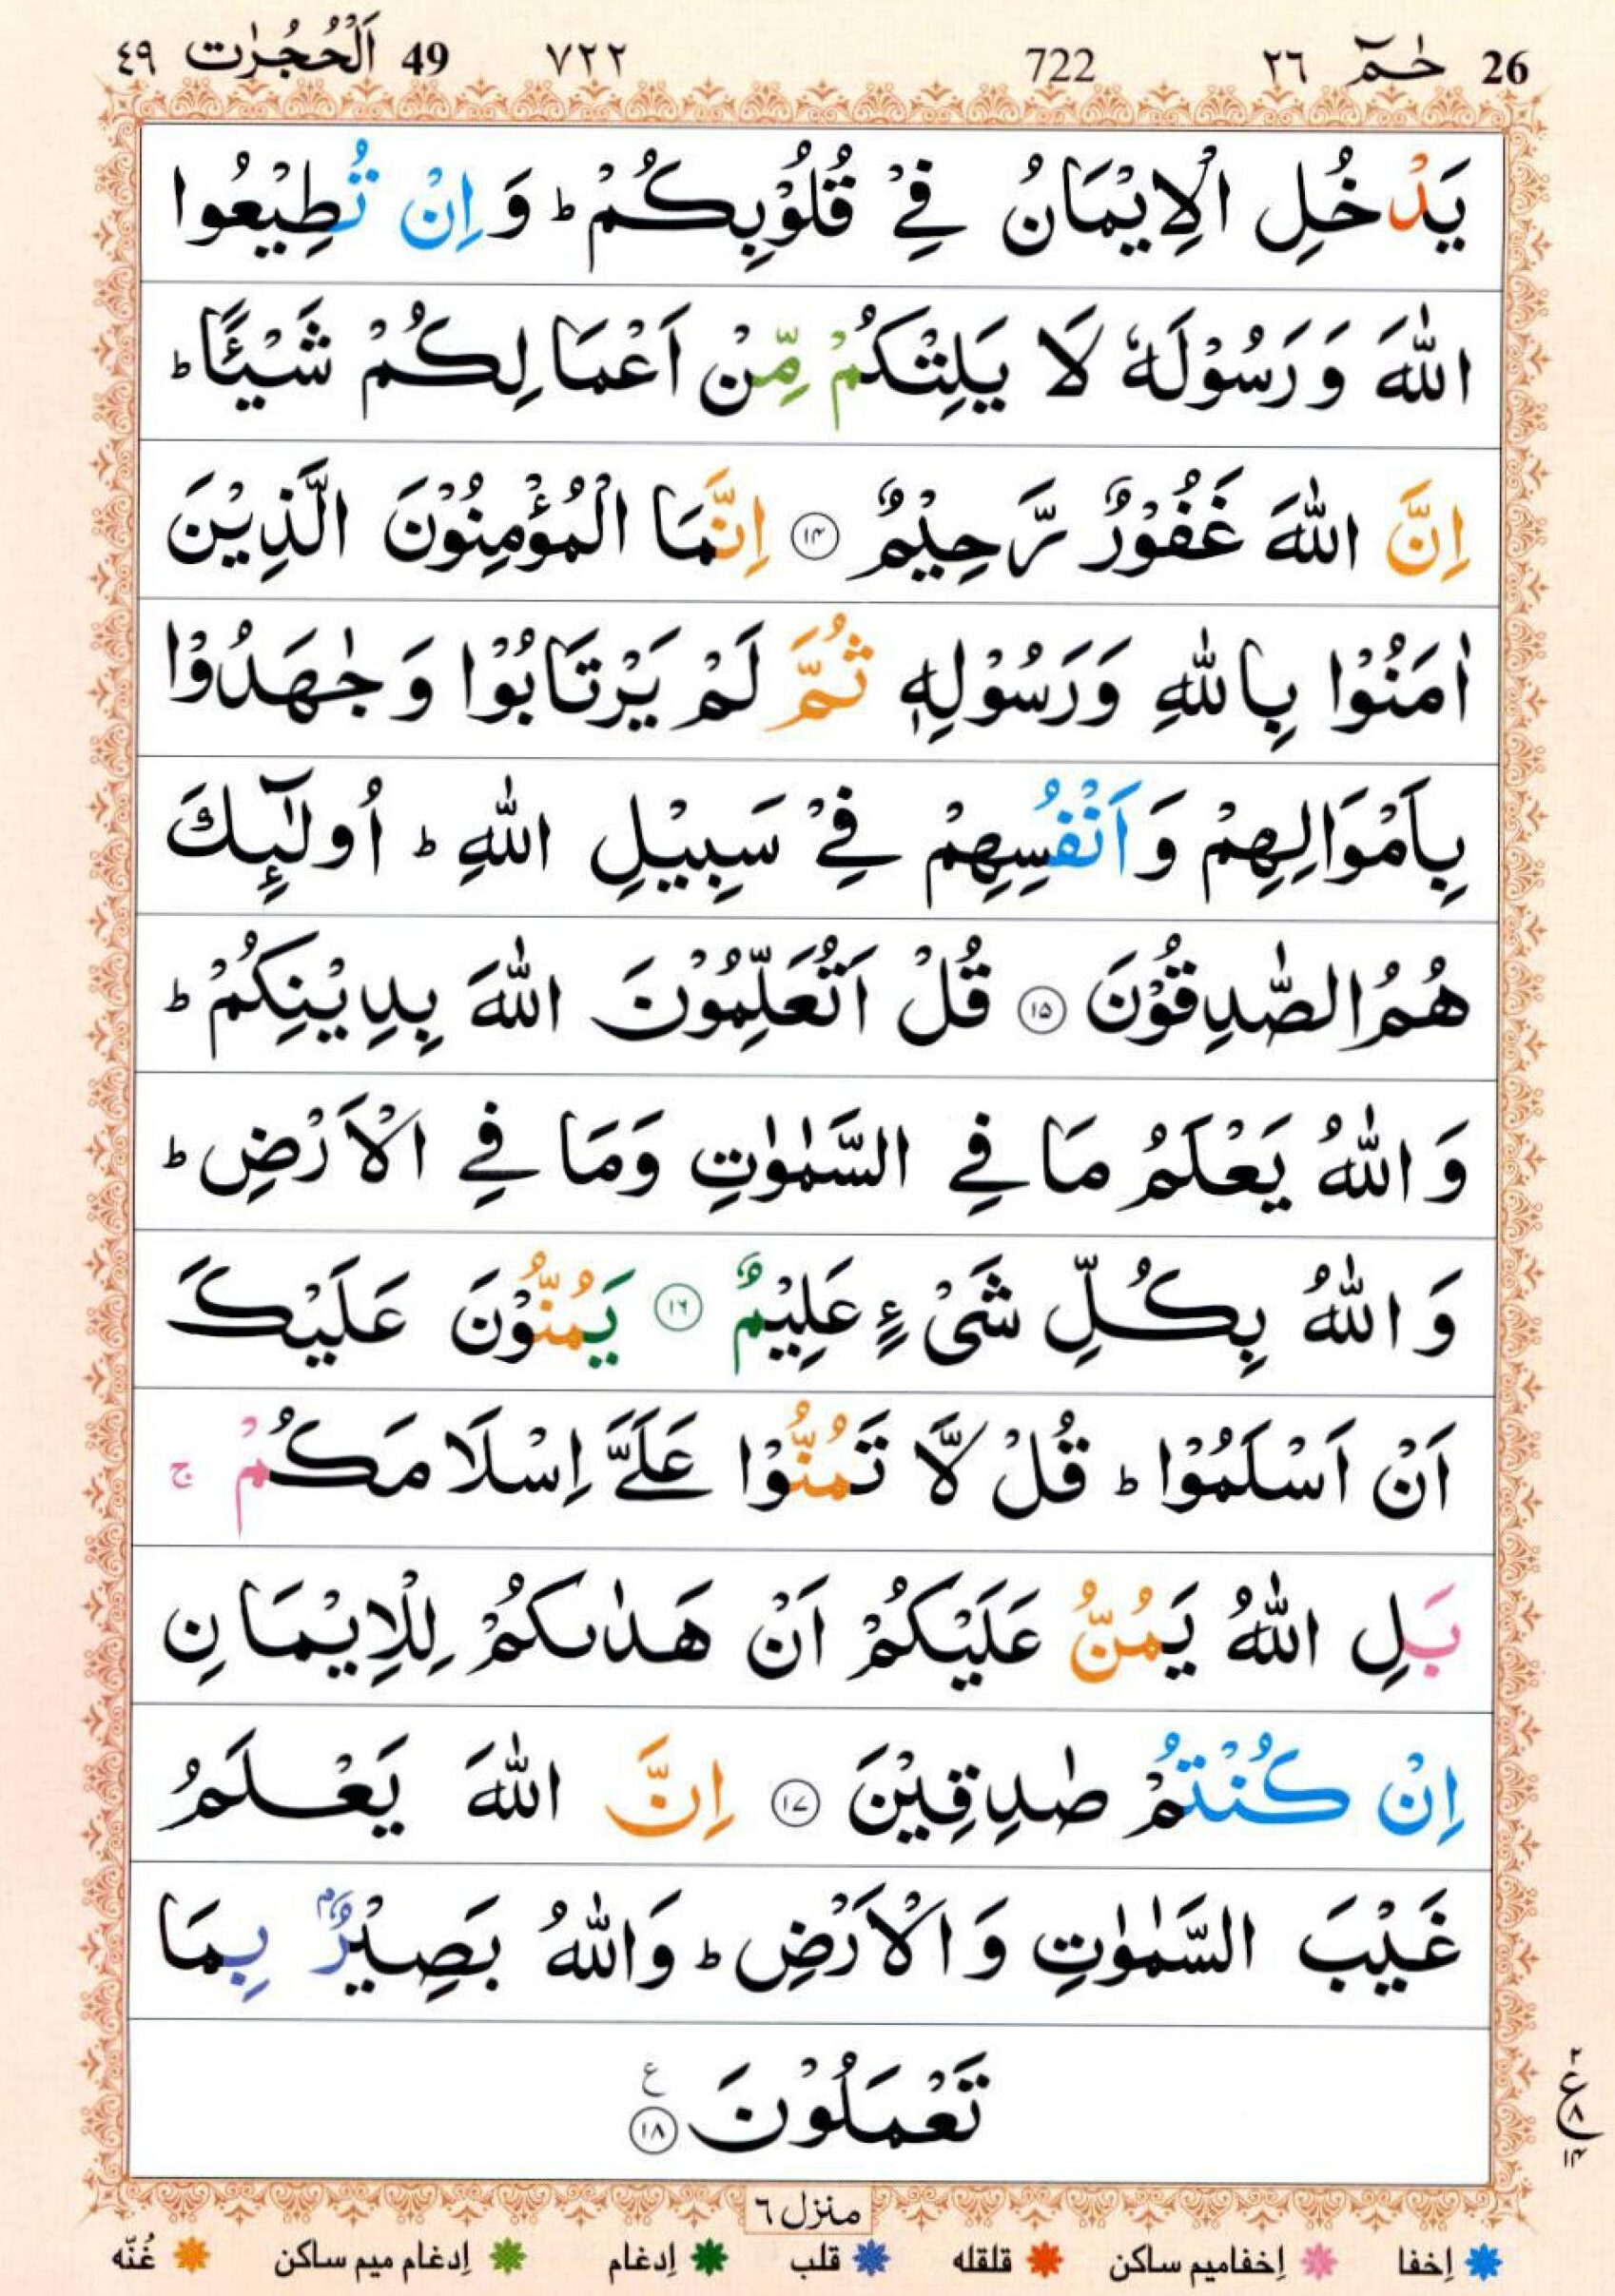 26 حٰمٓ ٢٦ 722 ٧٢٢ 49 اَلْحُجُرٰت ٤٩
يَدْخُلِ الْاِيْمَانُ فِيْ قُلُوْبِكُمْ ؕ وَ اِنْ تُطِيْعُوا
اللّٰهَ وَ رَسُوْلَهٗ لَا يَلِتْكُمْ مِّنْ اَعْمَا لِكُمْ شَيْـًٔا ؕ
اِنَّ اللّٰهَ غَفُوْرٌ رَّحِيْمٌ ۝۱۴ اِنَّمَا الْمُؤْمِنُوْنَ الَّذِيْنَ
اٰمَنُوْا بِاللّٰهِ وَرَسُوْلِهٖ ثُمَّ لَمْ يَرْتَابُوْا وَ جٰهَدُوْا
بِاَمْوَالِهِمْ وَ اَنْفُسِهِمْ فِيْ سَبِيْلِ اللّٰهِ ؕ اُولٰٓئِكَ
هُمُ الصّٰدِقُوْنَ ۝۱۵ قُلْ اَتُعَلِّمُوْنَ اللّٰهَ بِدِيْنِكُمْ ؕ
وَ اللّٰهُ يَعْلَمُ مَا فِي السَّمٰوٰتِ وَمَا فِي الْاَرْضِ ؕ
وَ اللّٰهُ بِكُلِّ شَيْءٍ عَلِيْمٌ ۝۱۶ يَمُنُّوْنَ عَلَيْكَ
اَنْ اَسْلَمُوْا ؕ قُلْ لَّا تَمُنُّوْا عَلَيَّ اِسْلَامَكُمْ ۚ
بَلِ اللّٰهُ يَمُنُّ عَلَيْكُمْ اَنْ هَدٰىكُمْ لِلْاِيْمَانِ
اِنْ كُنْتُمْ صٰدِقِيْنَ ۝۱۷ اِنَّ اللّٰهَ يَعْلَمُ
غَيْبَ السَّمٰوٰتِ وَ الْاَرْضِ ؕ وَاللّٰهُ بَصِيْرٌۢ بِمَا
تَعْمَلُوْنَ ۝۱۸ ع
٢
ع
٨
۱۴
منزل ٦
اِخفا اِخفامیم ساکن قلقله قلب اِدغام اِدغام میم ساکن غُنّه